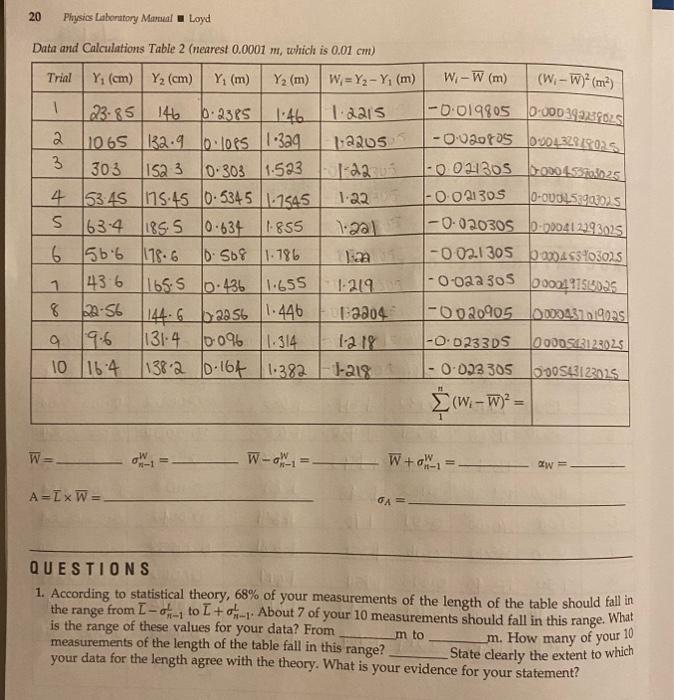 20 Physics Laboratory Manual ■ Loyd
Data and Calculations Table 2 (nearest 0.0001 m, which is 0.01 cm)
Trial Y₁ (cm) Y₂ (cm) Y₁ (m) Y₂ (m) Wᵢ = Y₂ – Y₁ (m) Wᵢ – W̅ (m) (Wᵢ – W̅)² (m²)
1 23.85 146 0.2385 1.46 1.2215 -0.019805 0.000392238025
2 1065 132.9 0.1085 1.329 1.2205 -0.020805
3 303 152 3 0.303 1.523 1.22 -0.021305
4 53.45 175.45 0.5345 1.7545 1.22 -0.021305
5 63.4 185.5 0.634 1.855 1.221 -0.020305 0.000412293025
6 56.6 178.6 0.568 1.786 1.22 -0.021305 0.000453903025
7 43.6 165.5 0.436 1.655 1.219 -0.022305
8 22.56 144.6 0.2256 1.446 1.2204 -0.020905 0.000437019025
9 9.6 131.4 0.096 1.314 1.218 -0.023305 0.000543123025
10 16.4 138.2 0.164 1.382 1.218 -0.023305 0.00543123025
n∑1 (Wᵢ – W̅)² =
W̅ = ______ σᵂₙ₋₁ = ______ W̅ – σᵂₙ₋₁ = ______ W̅ + σᵂₙ₋₁ = ______ αw = ______
A = L̅ × W̅ = ______ σA = ______
QUESTIONS
1. According to statistical theory, 68% of your measurements of the length of the table should fall in
the range from L̅ – σᴸₙ₋₁ to L̅ + σᴸₙ₋₁. About 7 of your 10 measurements should fall in this range. What
is the range of these values for your data? From ______ m to ______ m. How many of your 10
measurements of the length of the table fall in this range? ______ State clearly the extent to which
your data for the length agree with the theory. What is your evidence for your statement?